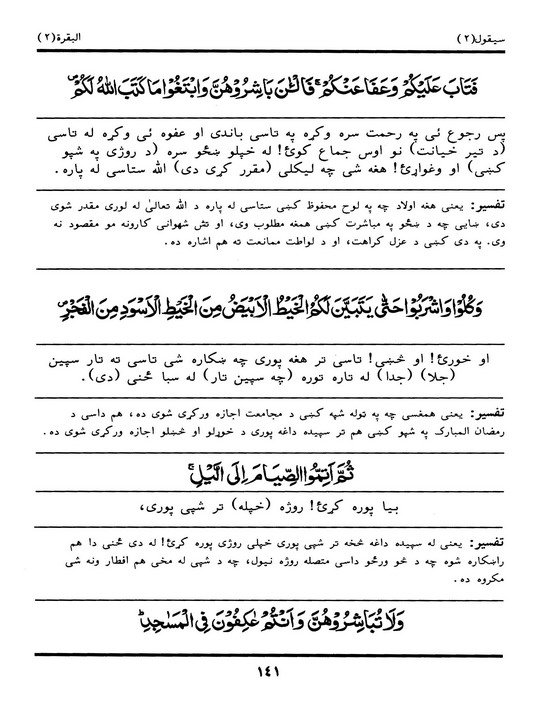 سيقول(٢)
البقرة(٢)
فَتَابَ عَلَيْكُمْ وَعَفَا عَنْكُمْ ۚ فَالْـٰٔنَ بَاشِرُوْهُنَّ وَابْتَغُوْا مَا كَتَبَ اللّٰهُ لَكُمْ ۪
پس رجوع ئې په رحمت سره وكړه په تاسې باندې او عفوه ئې وكړه له تاسې
(د تير خيانت) نو اوس جماع كوئ! له خپلو ښځو سره (د روژې په شپو
كښې) او وغواړئ! هغه شى چه ليكلى (مقرر كړى دى) الله ستاسې له پاره.
تفسير: يعنى هغه اولاد چه په لوح محفوظ كښې ستاسې له پاره د الله تعالىٰ له لورى مقدر شوى
دى، ښايى چه د ښځو په مباشرت كښې همغه مطلوب وى، او تش شهوانى كارونه مو مقصود نه
وى. په دى كښې د عزل كراهت، او د لواطت ممانعت ته هم اشاره ده.
وَكُلُوْا وَاشْرَبُوْا حَتّٰى يَتَبَيَّنَ لَكُمُ الْخَيْطُ الْاَبْيَضُ مِنَ الْخَيْطِ الْاَسْوَدِ مِنَ الْفَجْرِ ۪
او خورئ! او څښئ! تاسې تر هغه پورى چه ښكاره شى تاسې ته تار سپين
(جلا) (جدا) له تاره توره (چه سپين تار) له سبا ځنى (دى).
تفسير: يعنى همغسى چه په ټوله شپه كښې د مجامعت اجازه وركړى شوى ده، هم داسى د
رمضان المبارك په شپو كښې هم تر سپيده داغه پورى د خوړلو او څښلو اجازه وركړى شوى ده.
ثُمَّ اَتِمُّوا الصِّيَامَ اِلَى الَّيْلِ ۚ
بيا پوره كړئ! روژه (خپله) تر شپې پورى،
تفسير: يعنى له سپيده داغه څخه تر شپې پورى خپلى روژى پوره كړئ! له دى ځنى دا هم
راښكاره شوه چه د څو ورځو داسى متصله روژه نيول، چه د شپې له مخى هم افطار ونه شى
مكروه ده.
وَلَا تُبَاشِرُوْهُنَّ وَاَنْتُمْ عٰكِفُوْنَ فِى الْمَسٰجِدِ ؕ
١٤١